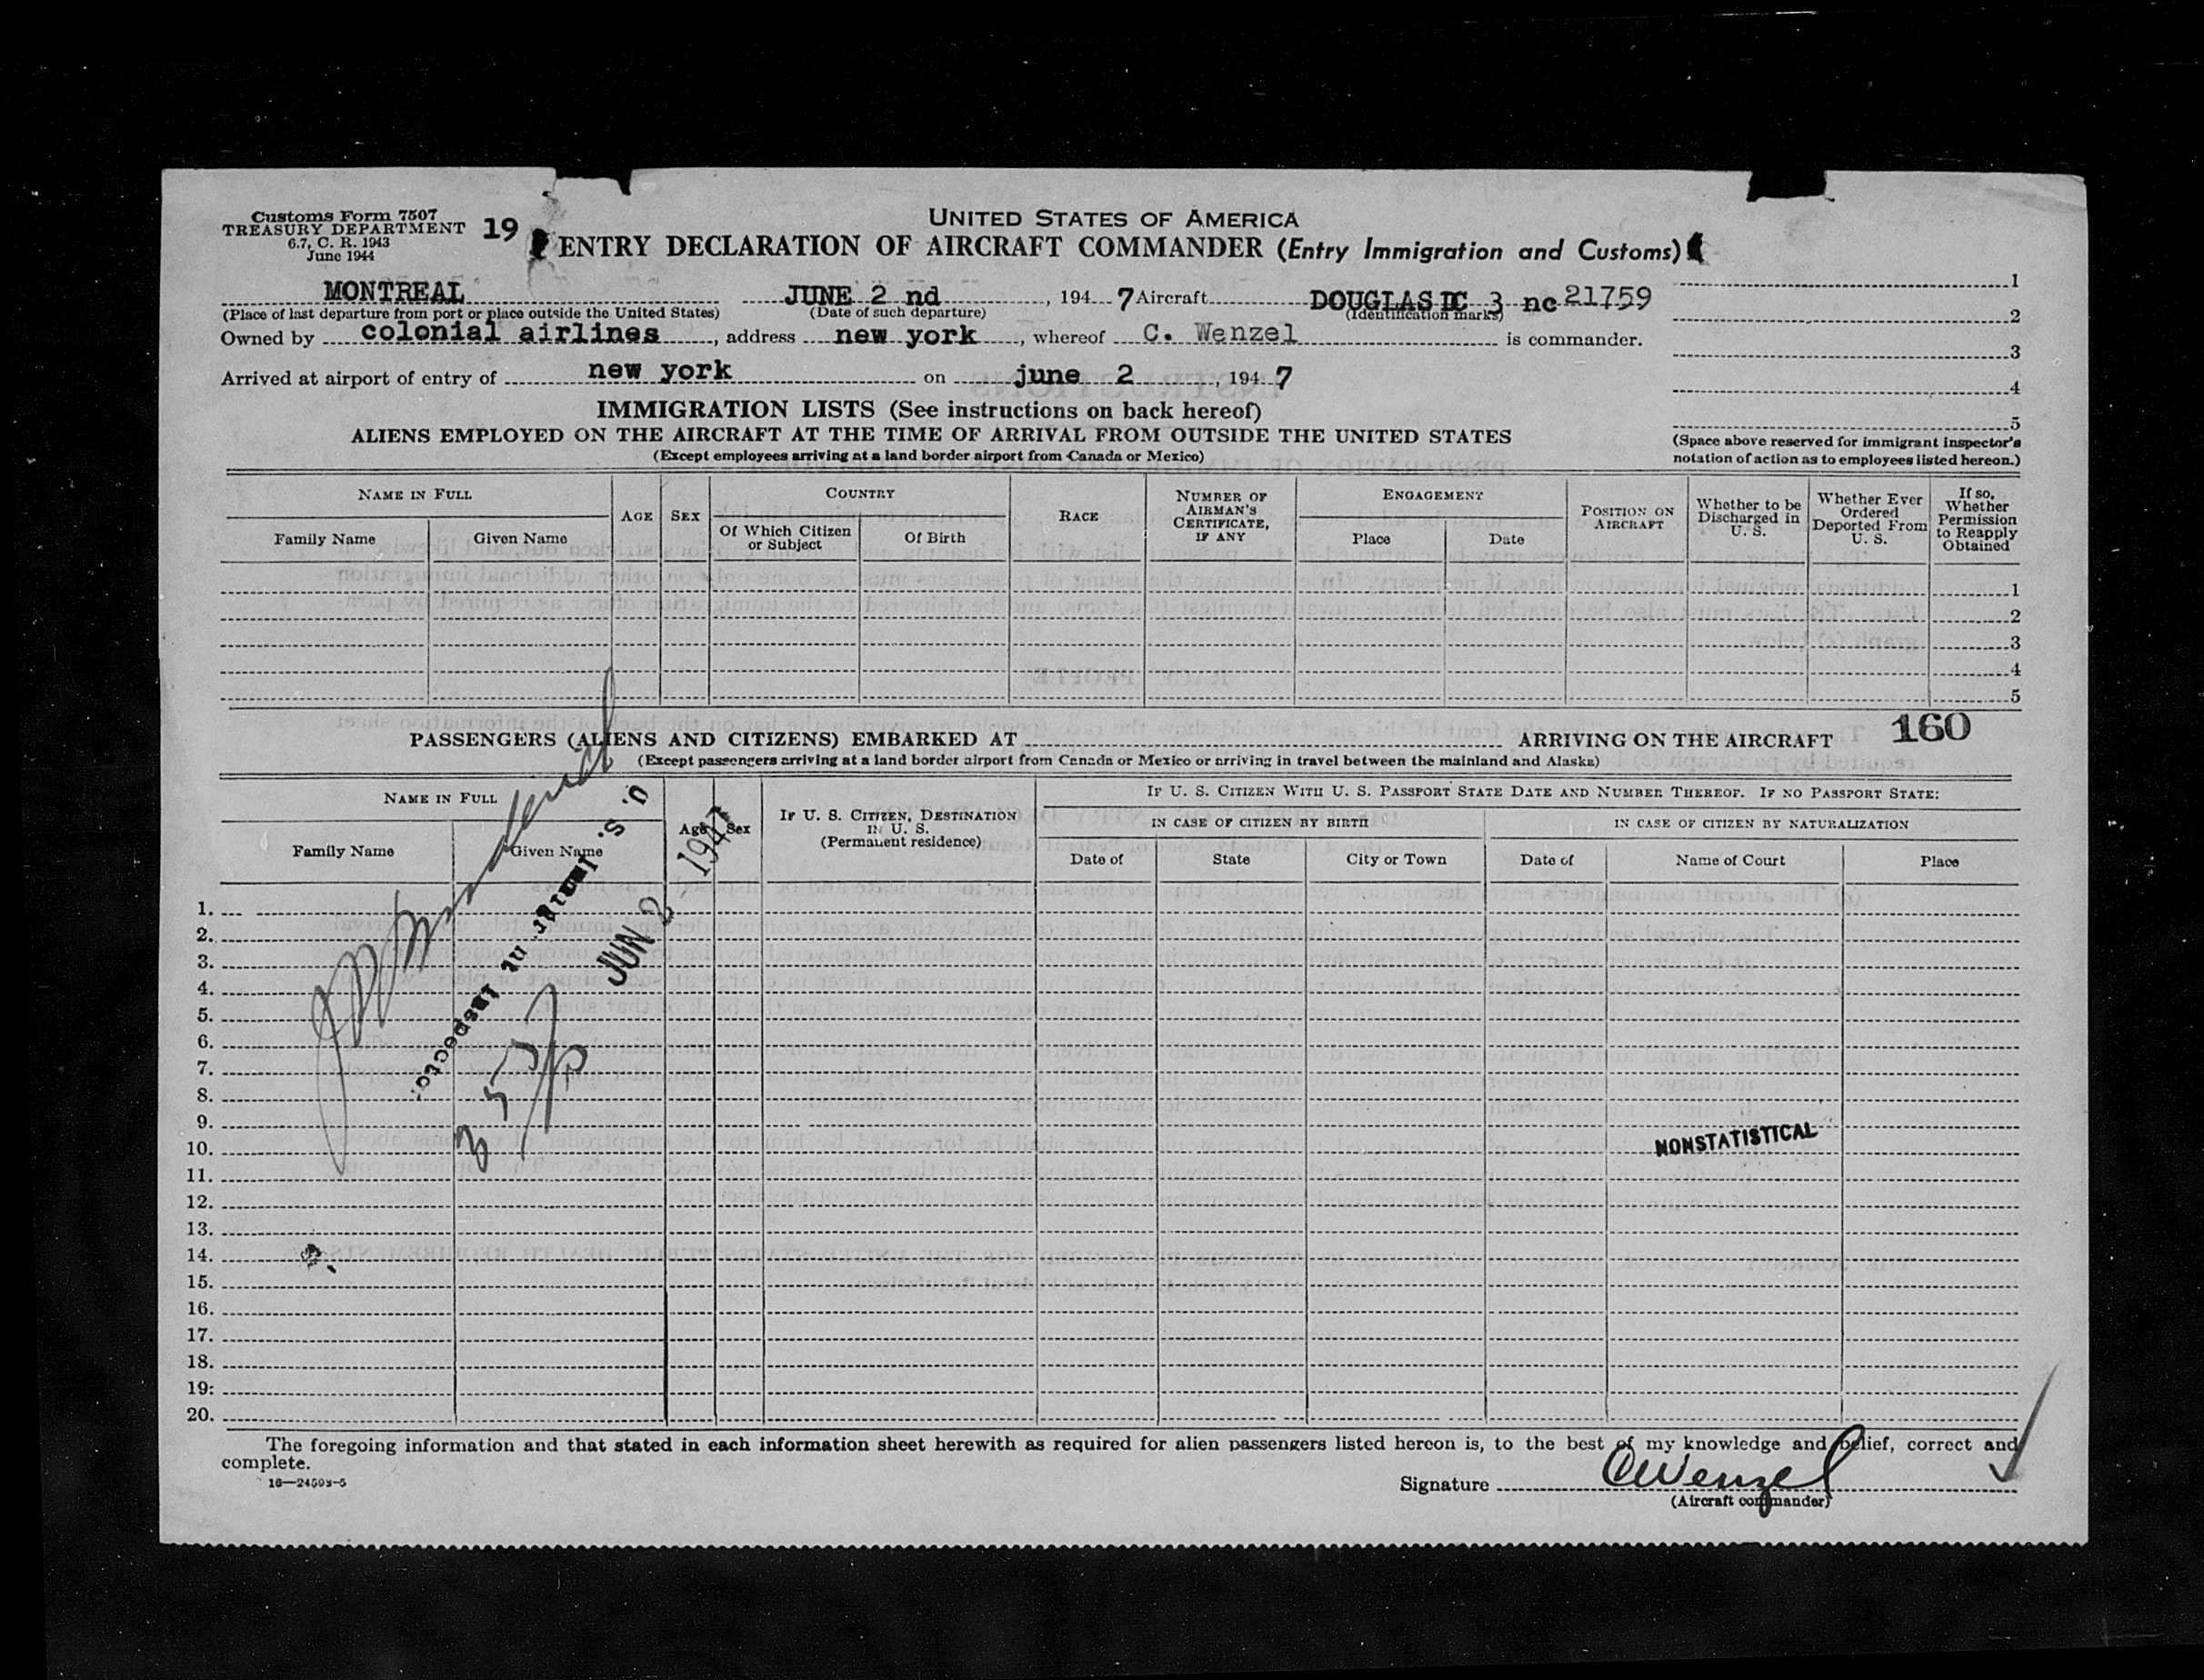 Customs Form 7507
TREASURY DEPARTMENT
6.7, C. R. 1943
June 1944
19
UNITED STATES OF AMERICA
ENTRY DECLARATION OF AIRCRAFT COMMANDER (Entry Immigration and Customs)
MONTREAL JUNE 2 nd, 1947 Aircraft DOUGLAS DC 3 nc 21759
(Place of last departure from port or place outside the United States) (Date of such departure) (Identification marks)
Owned by colonial airlines, address new york, whereof C. Wenzel is commander.
Arrived at airport of entry of new york on june 2, 1947
1
2
3
4
5
(Space above reserved for immigrant inspector's
notation of action as to employees listed hereon.)
IMMIGRATION LISTS (See instructions on back hereof)
ALIENS EMPLOYED ON THE AIRCRAFT AT THE TIME OF ARRIVAL FROM OUTSIDE THE UNITED STATES
(Except employees arriving at a land border airport from Canada or Mexico)
NAME IN FULL
Family Name Given Name
AGE SEX
COUNTRY
Of Which Citizen or Subject
Of Birth
RACE
NUMBER OF AIRMAN'S CERTIFICATE, IF ANY
ENGAGEMENT
Place Date
POSITION ON AIRCRAFT
Whether to be Discharged in U. S.
Whether Ever Ordered Deported From U. S.
If so, Whether Permission to Reapply Obtained
1
2
3
4
5
160
PASSENGERS (ALIENS AND CITIZENS) EMBARKED AT ARRIVING ON THE AIRCRAFT
(Except passengers arriving at a land border airport from Canada or Mexico or arriving in travel between the mainland and Alaska)
NAME IN FULL
Family Name Given Name
Age Sex
IF U. S. CITIZEN, DESTINATION IN U. S.
(Permanent residence)
IF U. S. CITIZEN WITH U. S. PASSPORT STATE DATE AND NUMBER THEREOF. IF NO PASSPORT STATE:
IN CASE OF CITIZEN BY BIRTH
Date of State City or Town
IN CASE OF CITIZEN BY NATURALIZATION
Date of Name of Court Place
U. S.
JUN 2 - 1947
1.
2.
3.
4.
5.
6.
7.
8.
9.
10.
NONSTATISTICAL
11.
12.
13.
14.
15.
16.
17.
18.
19.
20.
The foregoing information and that stated in each information sheet herewith as required for alien passengers listed hereon is, to the best of my knowledge and belief, correct and
complete.
Signature CWenzel
(Aircraft commander)